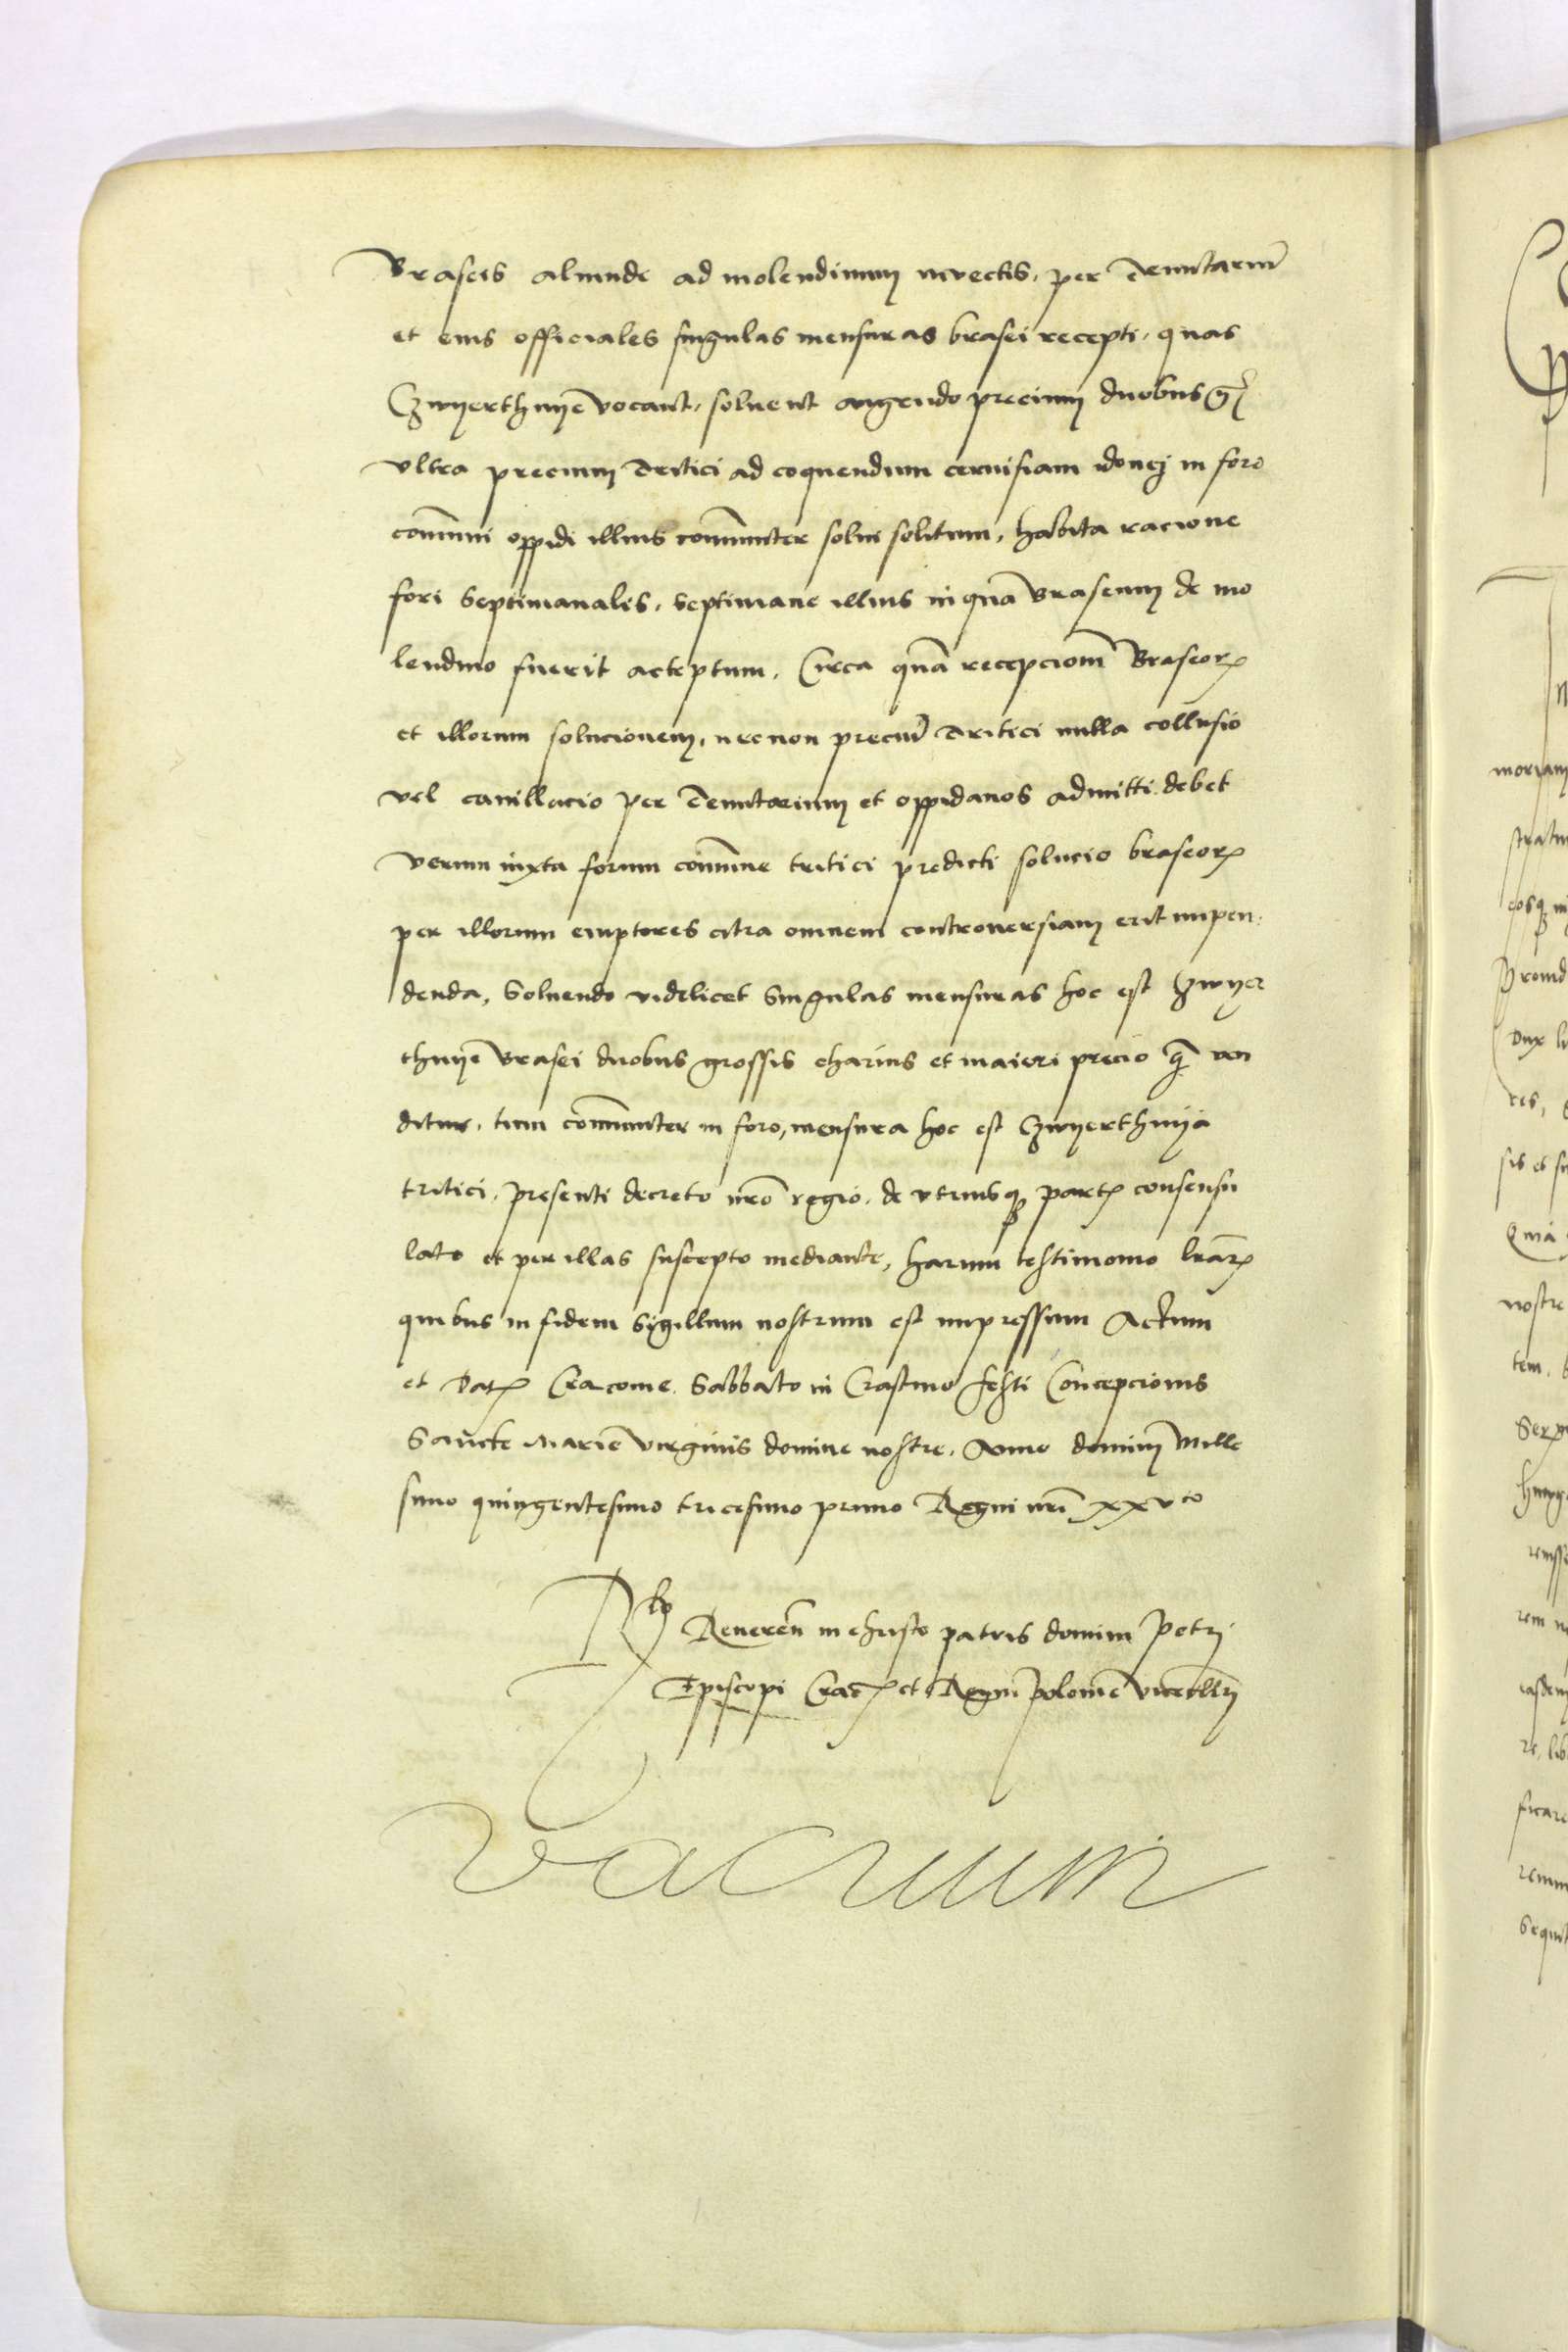 Braseis aliunde ad molendinum invectis, per Tenutariū
et eius officiales singulas mensuras brasei recepti, quas
Czwyerthnyē vocant, solvent augendo precium duobus gͬ
ultra precium Tritici ad coquendum cervisiam idonej in foro
com̄uni oppidi illius com̄uniter solvi solitum, habita racione
fori Septimanalis, Septimane illius in qua Braseum de mo
lendino fuerit acceptum, Circa quā recepcionē Braseorꝝ
et illorum solucionem, necnon preciū Tritici nulla collusio
vel cavillacio per Tenutarium et oppidanos admitti debet
Verum iuxta forum com̄une tritici predicti solucio braseorꝝ
per illorum emptores citra omnem controversiam erit impen
denda, Solvendo videlicet Singulas mensuras hoc est Czwyer
thnyē Brasei duobus grossis charius et maiori precio q̄ ven
ditur, tum com̄uniter in foro, mensura hoc est Czwyerthnya
tritici, presenti decreto nr̄o regio, de utriusqꝫ partꝭ consensu
lato et per illas suscepto mediante, harum testimonio lr̄arꝝ
quibus in fidem Sigillum nostrum est impressum Actum
et Datꝭ Cracovie Sabbato in Crastino festi Concepcionis
Sancte Marie virginis domine nostre, Anno domini Mille
simo quingentesimo tricesimo primo Regni nr̄i xxvto
Rlo Reveren̄ in christo patris domini Petrj
Episcopi Cracꝭ et Regni Polonie Vicecllrj
Vacuum